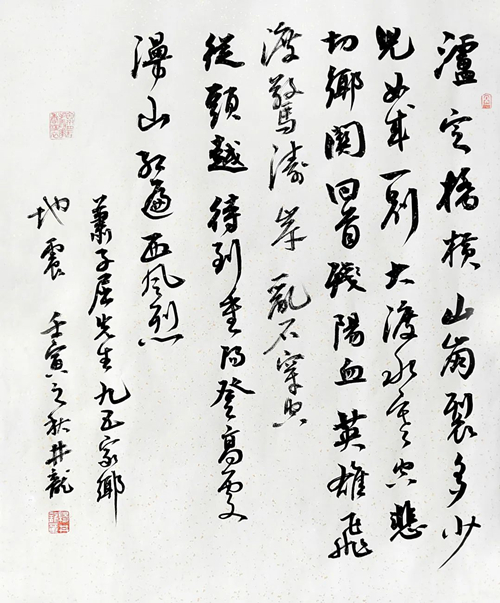 瀘定橋橫山崩裂多少
兒女成一別大渡水寒空悲
切鄉關回首殘陽血英雄飛
渡驚濤岸亂石穿空
從頭越待到重陽登高處
漫山紅遍西風烈
蕭子居先生九五家鄉
地震 壬寅之秋井龍